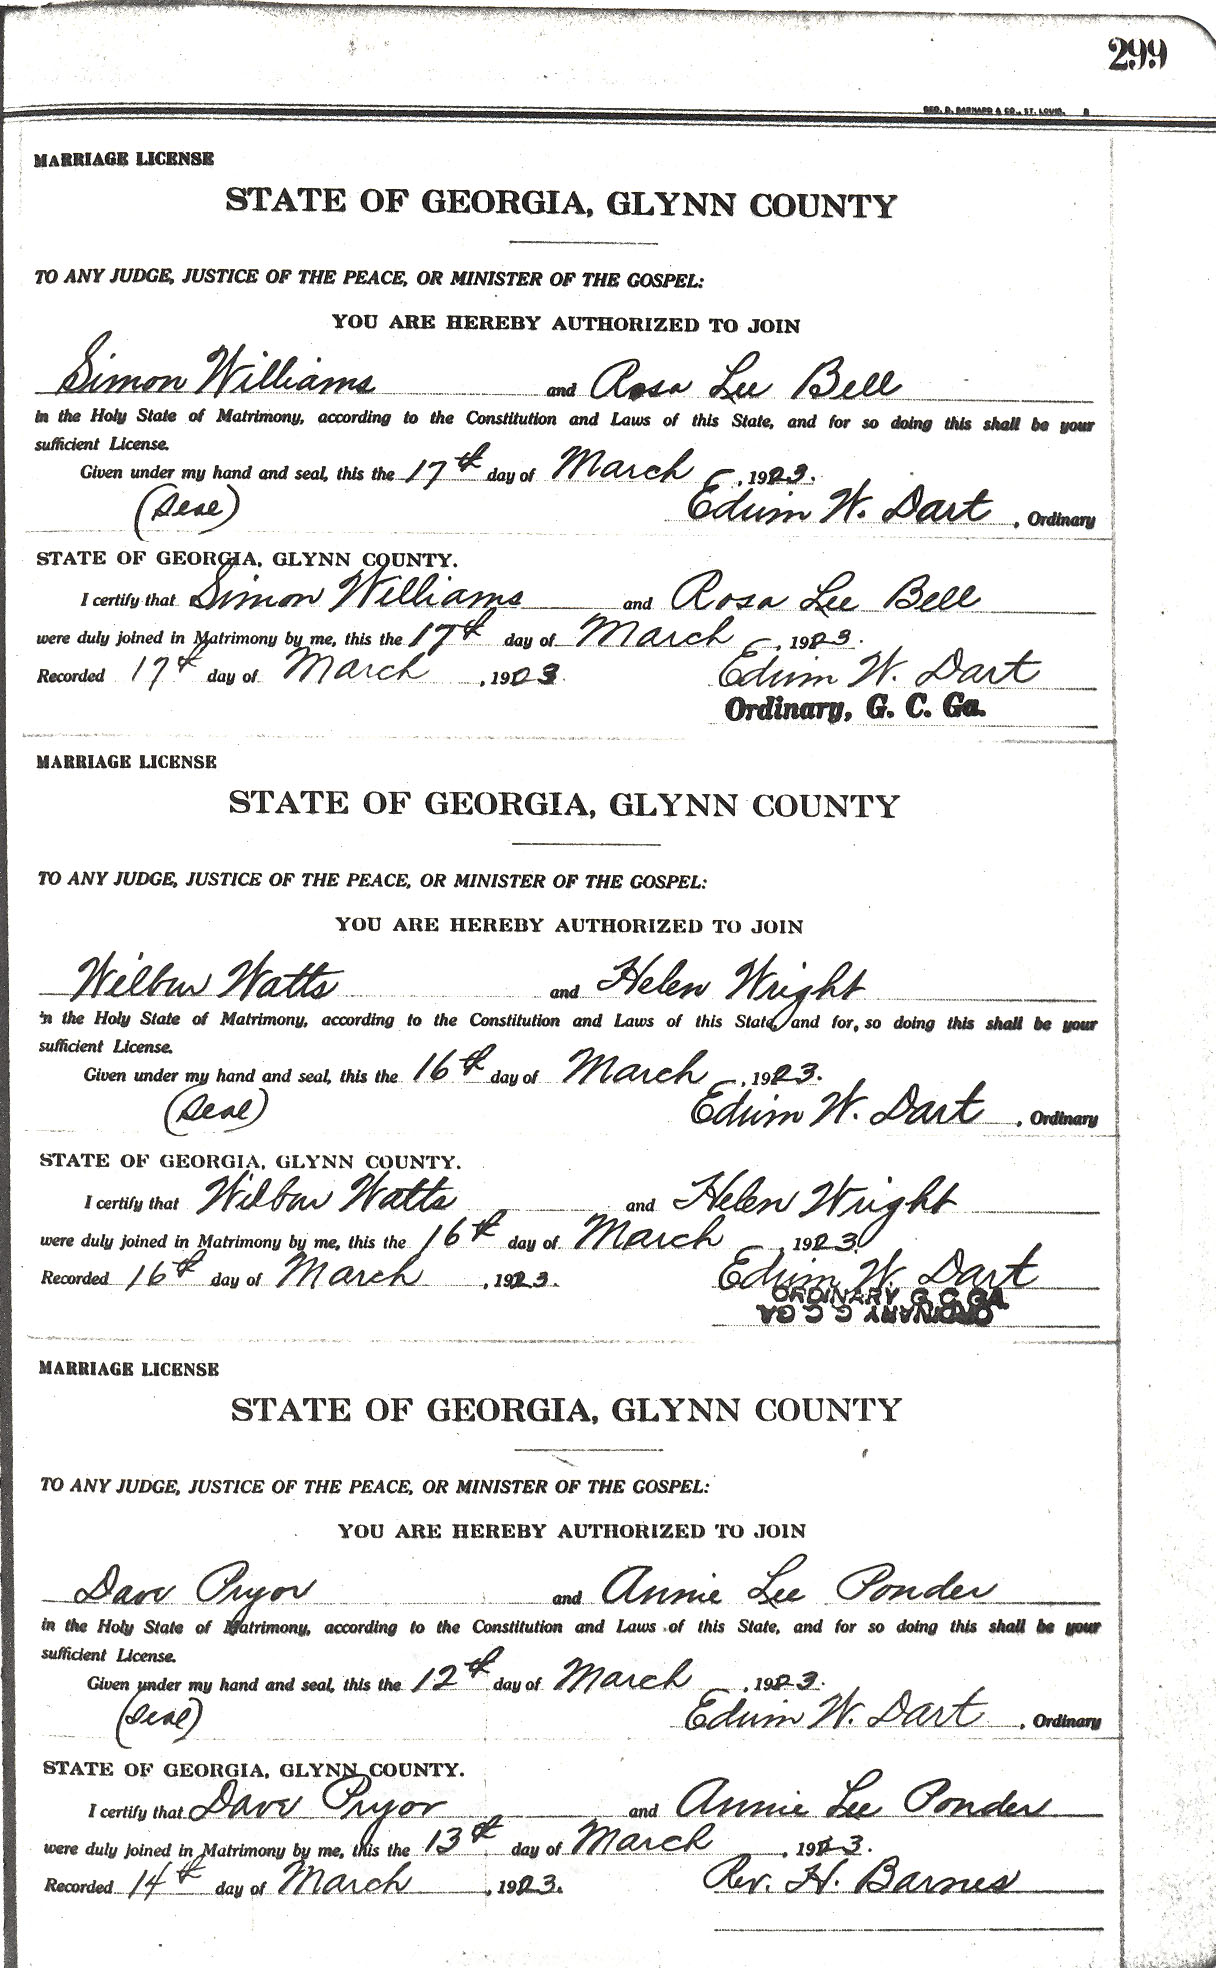 299
GEO. D. BARNARD & CO., ST. LOUIS.
MARRIAGE LICENSE
STATE OF GEORGIA, GLYNN COUNTY
TO ANY JUDGE, JUSTICE OF THE PEACE, OR MINISTER OF THE GOSPEL:
YOU ARE HEREBY AUTHORIZED TO JOIN
Simon Williams and Rosa Lee Bell
in the Holy State of Matrimony, according to the Constitution and Laws of this State, and for so doing this shall be your
sufficient License.
Given under my hand and seal, this the 17th day of March, 1923.
(Seal) Edwin W. Dart, Ordinary
STATE OF GEORGIA, GLYNN COUNTY.
I certify that Simon Williams and Rosa Lee Bell
were duly joined in Matrimony by me, this the 17th day of March, 1923.
Recorded 17th day of March, 1923 Edwin W. Dart
Ordinary, G. C. Ga.
MARRIAGE LICENSE
STATE OF GEORGIA, GLYNN COUNTY
TO ANY JUDGE, JUSTICE OF THE PEACE, OR MINISTER OF THE GOSPEL:
YOU ARE HEREBY AUTHORIZED TO JOIN
Wilbur Watts and Helen Wright
in the Holy State of Matrimony, according to the Constitution and Laws of this State, and for so doing this shall be your
sufficient License.
Given under my hand and seal, this the 16th day of March, 1923.
(Seal) Edwin W. Dart, Ordinary
STATE OF GEORGIA, GLYNN COUNTY.
I certify that Wilbur Watts and Helen Wright
were duly joined in Matrimony by me, this the 16th day of March, 1923.
Recorded 16th day of March, 1923. Edwin W. Dart
ORDINARY G C GA.
ORDINARY G C GA
MARRIAGE LICENSE
STATE OF GEORGIA, GLYNN COUNTY
TO ANY JUDGE, JUSTICE OF THE PEACE, OR MINISTER OF THE GOSPEL:
YOU ARE HEREBY AUTHORIZED TO JOIN
Dave Pryor and Annie Lee Ponder
in the Holy State of Matrimony, according to the Constitution and Laws of this State, and for so doing this shall be your
sufficient License.
Given under my hand and seal, this the 12th day of March, 1923.
(Seal) Edwin W. Dart, Ordinary
STATE OF GEORGIA, GLYNN COUNTY.
I certify that Dave Pryor and Annie Lee Ponder
were duly joined in Matrimony by me, this the 13th day of March, 1923.
Recorded 14th day of March, 1923. Rev. H. Barnes